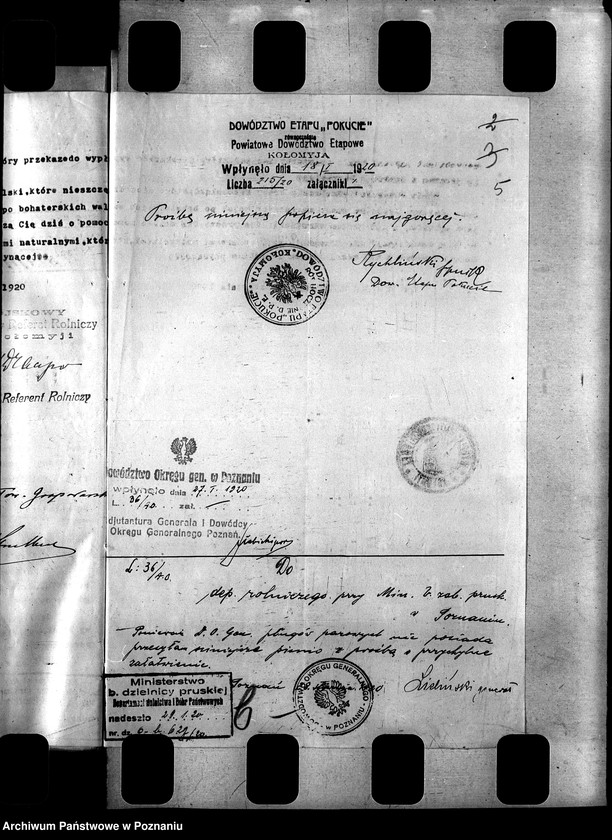 óry przekazedo wypł
lski, które nieszczę
po bohaterskich wal
zą Cię dziś o pomoc
mi naturalnymi, któr
ynacejce
1920
JSKOWY
Referat Rolniczy
ołomyji
Referent Rolniczy
Tow. Gospodarsk
DOWÓDZTWO ETAPU „POKUCIE"
równocześnie
Powiatowe Dowództwo Etapowe
KOŁOMYJA
Wpłynęło dnia 18/I 1920
Liczba 215/20 załączniki 1
2
3
5
Prośbę niniejszą popiera się najgoręcej.
Rychliński
Dow. Etapu Pokucie
DOWÓDZTWO ETAPU „POKUCIE" KOŁOMYJA
Dowództwo Okręgu gen. w Poznaniu
wpłynęło dnia 27. I. 1920
L. 36/40. zał.
djutantura Generała i Dowódcy
Okręgu Generalnego Poznań.
L: 36/40.
Do
dep. rolniczego przy Min. b. zab. prusk.
w Poznaniu.
Ponieważ D. O. Gen. pługów parowych nie posiada
przesyłam niniejsze pismo z prośbą o przychylne
załatwienie.
Poznań
generał
DOWÓDZTWO OKRĘGU GENERALNEGO W POZNANIU
Ministerstwo
b. dzielnicy pruskiej
Departament rolnictwa i Dóbr Państwowych
nadeszło 28.1.20.
nr. dz.
Archiwum Państwowe w Poznaniu